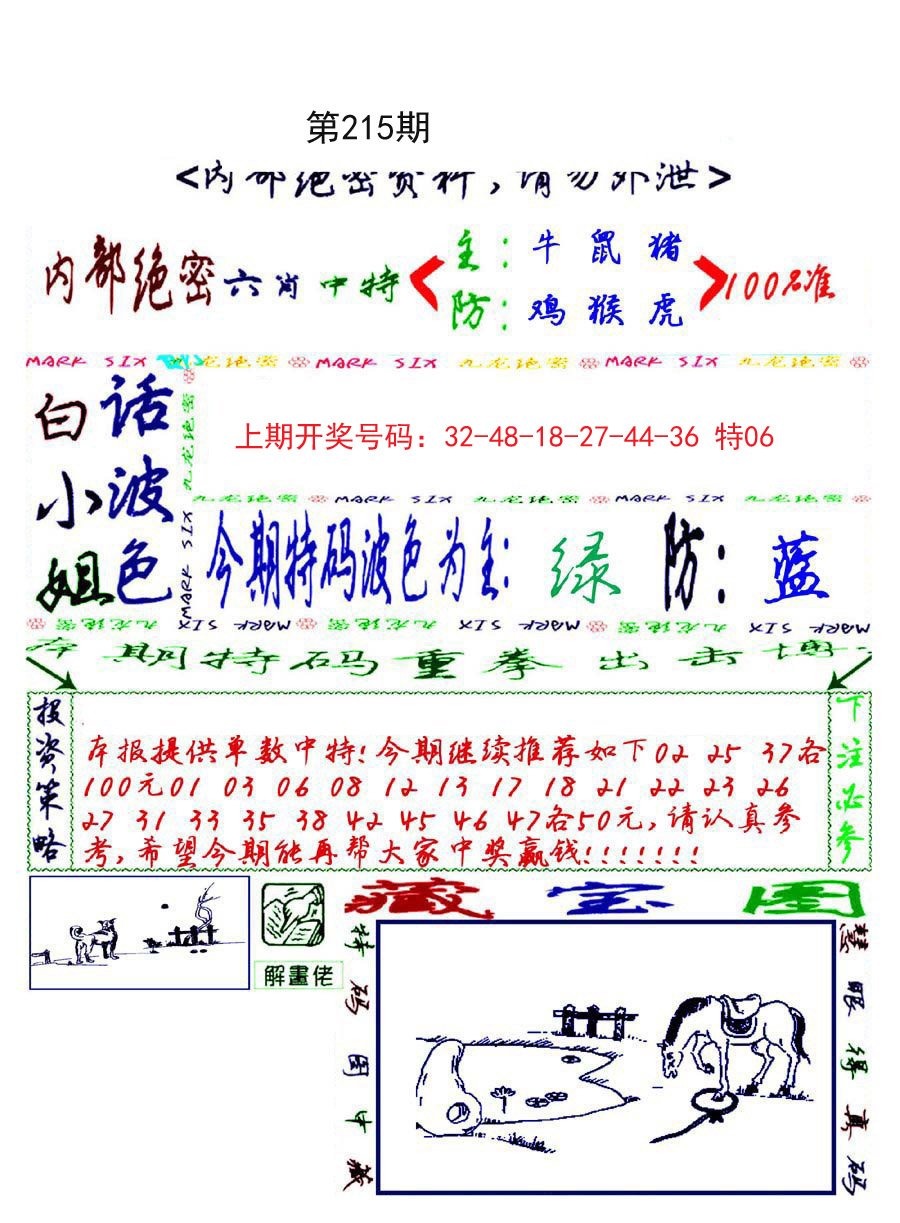 第215期
<内部绝密资料,请勿外泄>
内部绝密六肖中特
主:牛鼠猪
防:鸡猴虎
100%准
MARK SIX 九龙绝密 MARK SIX 九龙绝密 MARK SIX 九龙绝密
白小姐
话波色
九龙绝密
MARK SIX
上期开奖号码：32-48-18-27-44-36 特06
九龙绝密 MARK SIX 九龙绝密 MARK SIX 九龙绝密
今期特码波色为主:绿 防:蓝
九龙绝密 MARK SIX 九龙绝密 MARK SIX 九龙绝密 MARK SIX
本期特码重拳出击博
投资策略
本报提供单数中特!今期继续推荐如下02 25 37各
100元01 03 06 08 12 13 17 18 21 22 23 26
27 31 33 35 38 42 45 46 47各50元,请认真参
考,希望今期能再帮大家中奖赢钱!!!!!!!
下注必参
解畫佬
藏宝图
特码图中藏
慧眼得真码